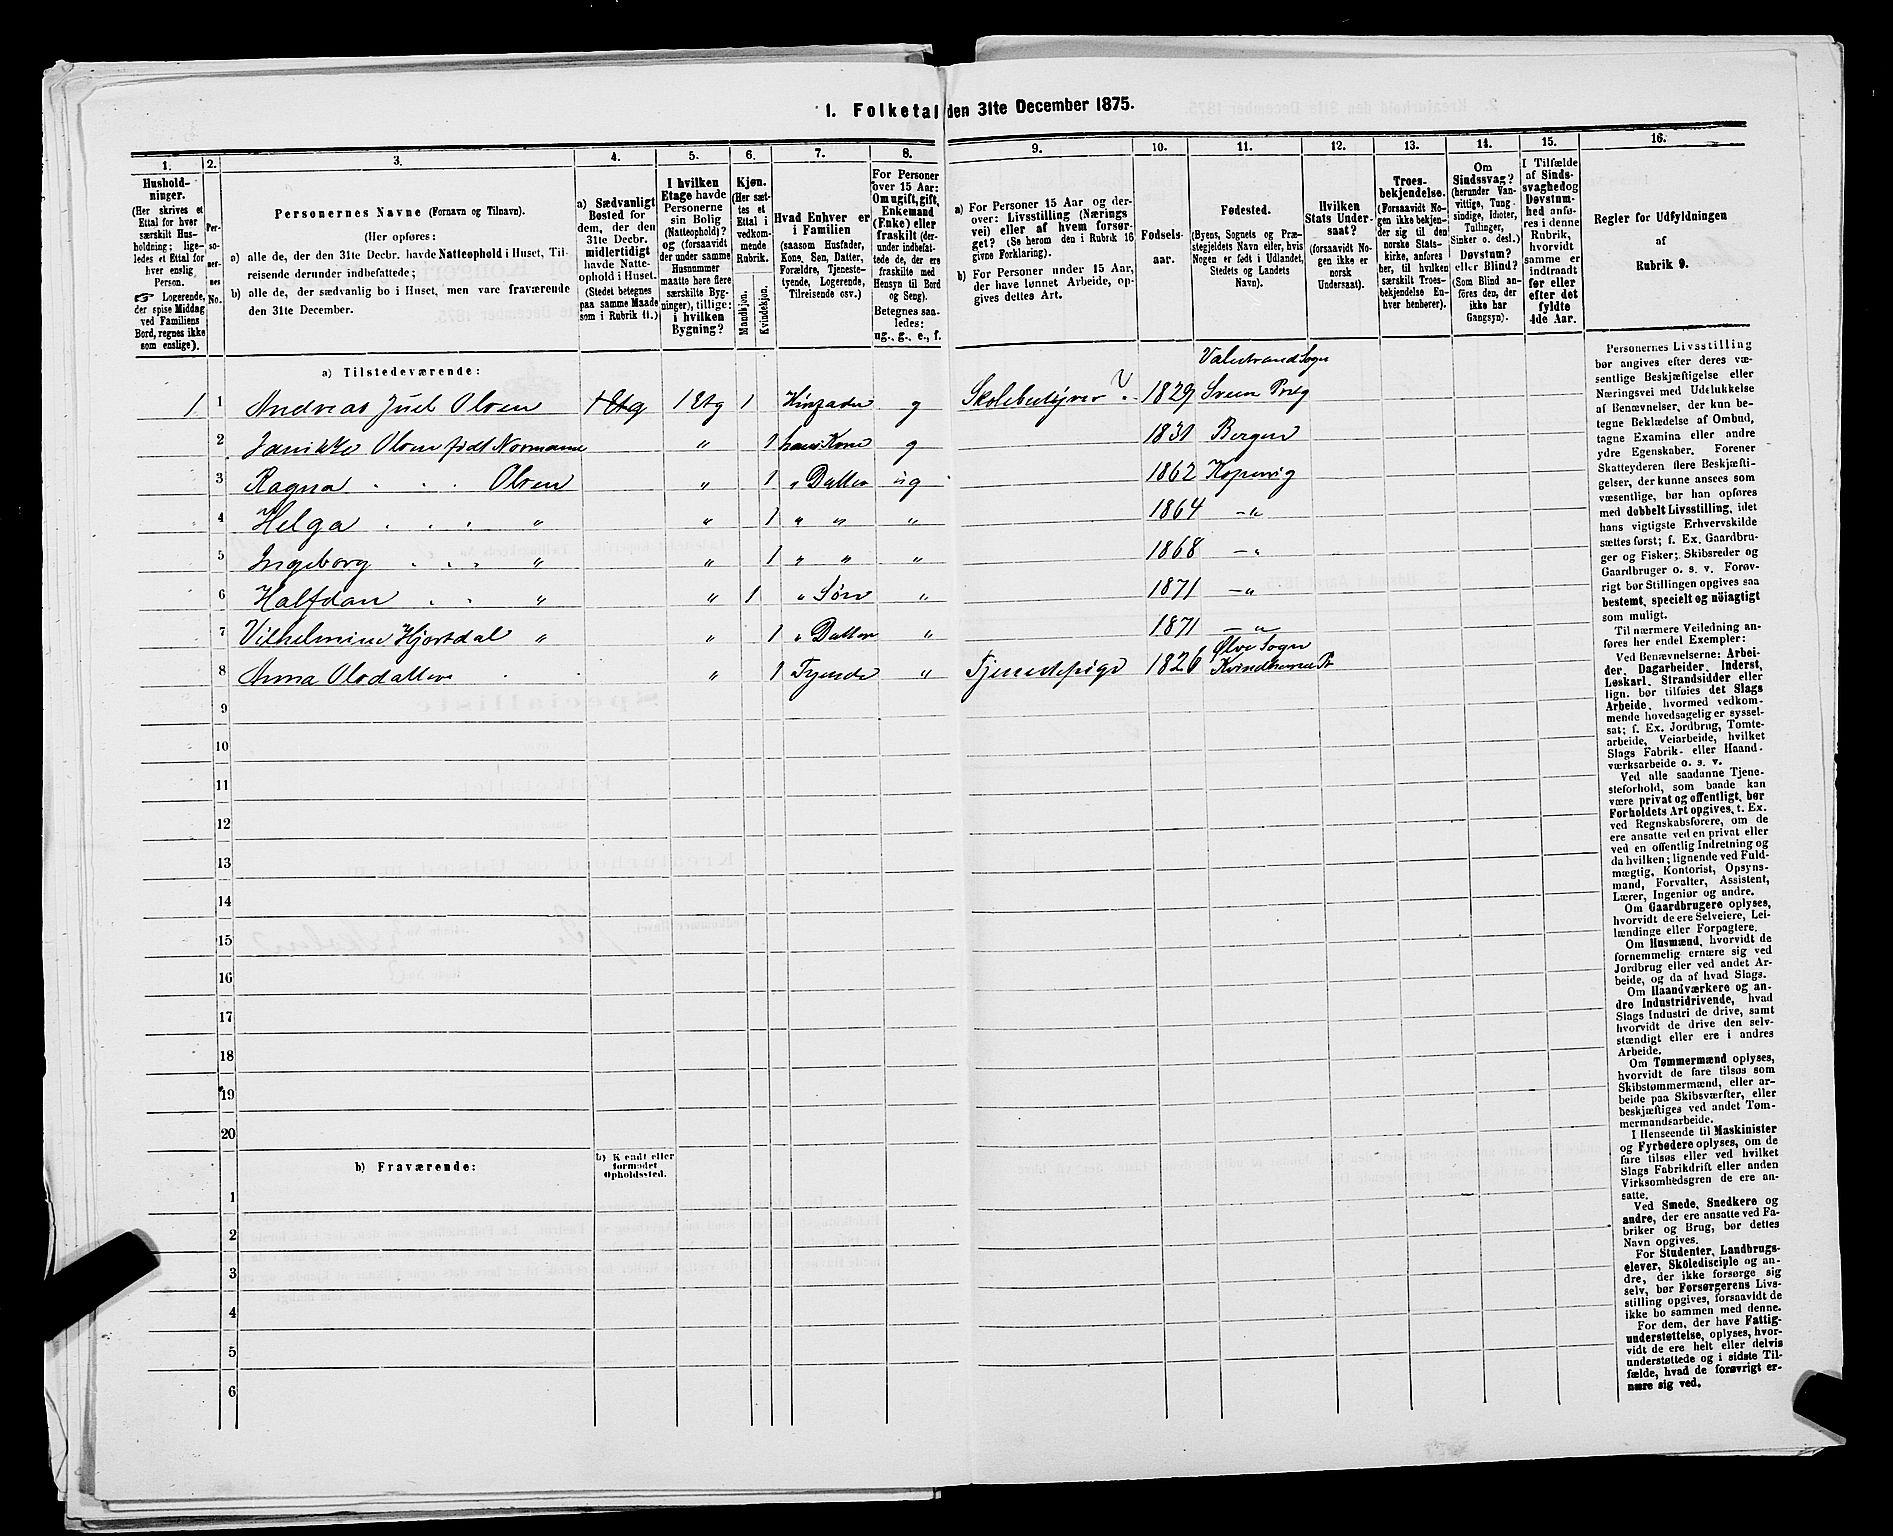 1. Folketal den 31te December 1875.
1. 2. 3. 4. 5. 6. 7. 8. 9. 10. 11. 12. 13. 14. 15. 16.
Husholdninger.
(Her skrives et
Ettal for hver
særskilt Husholdning;
ligeledes et Ettal for
hver enslig
Person.
☞ Logerende,
der spise Middag
ved Familiens
Bord, regnes ikke
som enslige).
Personernes No.
Personernes Navne (Fornavn og Tilnavn).
(Her opføres:
a) alle de, der den 31te Decbr. havde Natteophold i Huset, Tilreisende derunder indbefattede;
b) alle de, der sædvanlig bo i Huset, men vare fraværende
den 31te December.
a) Sædvanligt
Bosted for
dem, der den
31te Decbr.
midlertidigt
havde Natteophold i Huset.
(Stedet betegnes
paa samme Maade
som i Rubrik 11.)
I hvilken
Etage havde
Personerne
sin Bolig
(Natteophold)?
og (forsaavidt
der under samme
Husnummer
maatte høre flere
særskilte Bygninger), tillige:
i hvilken
Bygning?
Kjøn.
(Her sættes et
Ettal i
vedkommende
Rubrik.
Mandkjøn.
Kvindekjøn.
Hvad Enhver er
i Familien
(saasom Husfader,
Kone, Søn, Datter,
Forældre, Tjenestetyende, Logerende,
Tilreisende osv.)
For Personer
over 15 Aar:
Om ugift, gift,
Enkemand
(Enke) eller
fraskilt (derunder indbefattede de, der ere
fraskilte med
Hensyn til Bord
og Seng).
Betegnes saaledes:
ug., g., e., f.
a) For Personer 15 Aar og derover: Livsstilling (Næringsvei) eller af hvem forsørget? (Se herom den i Rubrik 16
givne Forklaring).
b) For Personer under 15 Aar,
der have lønnet Arbeide, opgives dettes Art.
Fødselsaar.
Fødested.
(Byens, Sognets og Præstegjeldets Navn eller, hvis
Nogen er født i Udlandet,
Stedets og Landets
Navn).
Hvilken
Stats Undersaat?
(forsaavidt Nogen ikke er
norsk
Undersaat).
Troesbekjendelse.
(Forsaavidt Nogen ikke bekjender sig til den
norske Statskirke, anføres
her, til hvilken
særskilt Troesbekjendelse Enhver henhører).
Om
Sindssvag?
(herunder Vanvittige, Tungsindige, Idioter,
Tullinger,
Sinker o. desl.)
Døvstum?
eller Blind?
(Som Blind anføres den, der
ikke har
Gangsyn).
I Tilfælde
af Sindssvaghed og
Døvstumhed anføres i denne
Rubrik,
hvorvidt
samme er
indtraadt
før eller
efter det
fyldte
4de Aar.
Regler for Udfyldningen
af
Rubrik 9.
a) Tilstedeværende:
Valestrand Sogn
1 1 Andreas Juel Olsen 1 Etg 1 Etg 1 Husfader g Skolebestyrer 1829 Sveen Prsg
2 Janikke Olsen født Normann " 1 hans Kone g 1831 Bergen
3 Ragna Olsen " 1 " Datter ug 1862 Kopervig
4 Helga " " 1 " " " 1864 — "
5 Ingeborg " " 1 " " " 1868 — "
6 Halfdan " " 1 " Søn " 1871 — "
7 Vilhelmine Hjortdal " " 1 " Datter " 1871 — "
Ølve Sogn
8 Anna Olsdatter " 1 Tyende " Tjenestepige 1826 Kvindherred Pr
9
10
11
12
13
14
15
16
17
18
19
20
b) Fraværende:
b) Kjendt eller
formodet
Opholdssted.
1
2
3
4
5
6
Personernes Livsstilling
bør angives efter deres væsentlige Beskjæftigelse eller
Næringsvei med Udelukkelse
af Benævnelser, der kun betegne Beklædelse af Ombud,
tagne Examina eller andre
ydre Egenskaber. Forener
Skatteyderen flere Beskjæftigelser, der kunne ansees som
væsentlige, bør han opføres
med dobbelt Livsstilling, idet
hans vigtigste Erhvervskilde
sættes først; f. Ex. Gaardbruger og Fisker; Skibsreder og
Gaardbruger o. s. v. Forøvrigt bør Stillingen opgives saa
bestemt, specielt og nöiagtigt
som muligt.
Til nærmere Veiledning anføres her endel Exempler:
Ved Benævnelserne: Arbeider, Dagarbeider, Inderst,
Løskarl, Strandsidder eller
lign. bør tilføies det Slags
Arbeide, hvormed vedkommende hovedsagelig er sysselsat; f. Ex. Jordbrug, Tomtearbeide, Veiarbeide, hvilket
Slags Fabrik- eller Haandværksarbeide o. s. v.
Ved alle saadanne Tjenesteforhold, som baade kan
være privat og offentligt, bør
Forholdets Art opgives, t. Ex.
ved Regnskabsførere, om de
ere ansatte ved en privat eller
ved en offentlig Indretning og
da hvilken; lignende ved Fuldmægtig, Kontorist, Opsynsmand, Forvalter, Assistent,
Lærer, Ingeniør og andre.
Om Gaardbrugere oplyses,
hvorvidt de ere Selveiere, Leilændinge eller Forpagtere.
Om Husmænd, hvorvidt de
fornemmelig ernære sig ved
Jordbrug eller ved andet Arbeide, og da af hvad Slags.
Om Haandværkere og andre Industridrivende, hvad
Slags Industri de drive, samt
hvorvidt de drive den selvstændigt eller ere i andres
Arbeide.
Om Tømmermænd oplyses,
hvorvidt de fare tilsøs som
Skibstømmermænd, eller arbeide paa Skibsværfter, eller
beskjæftiges ved andet Tømmermandsarbeide.
I Henseende til Maskinister
og Fyrbødere oplyses, om de
fare tilsøs eller ved hvilket
Slags Fabrikdrift eller anden
Virksomhedsgren de ere ansatte.
Ved Smede, Snedkere og
andre, der ere ansatte ved Fabriker og Brug, bør dettes
Navn opgives.
For Studenter, Landbrugselever, Skoledisciple og andre, der ikke forsørge sig
selv, bør Forsørgerens Livsstilling opgives, forsaavidt de
ikke bo sammen med denne.
For dem, der have Fattigunderstøttelse, oplyses, hvorvidt de ere helt eller delvis
understøttede og i sidste Tilfælde, hvad de forøvrigt ernære sig ved.